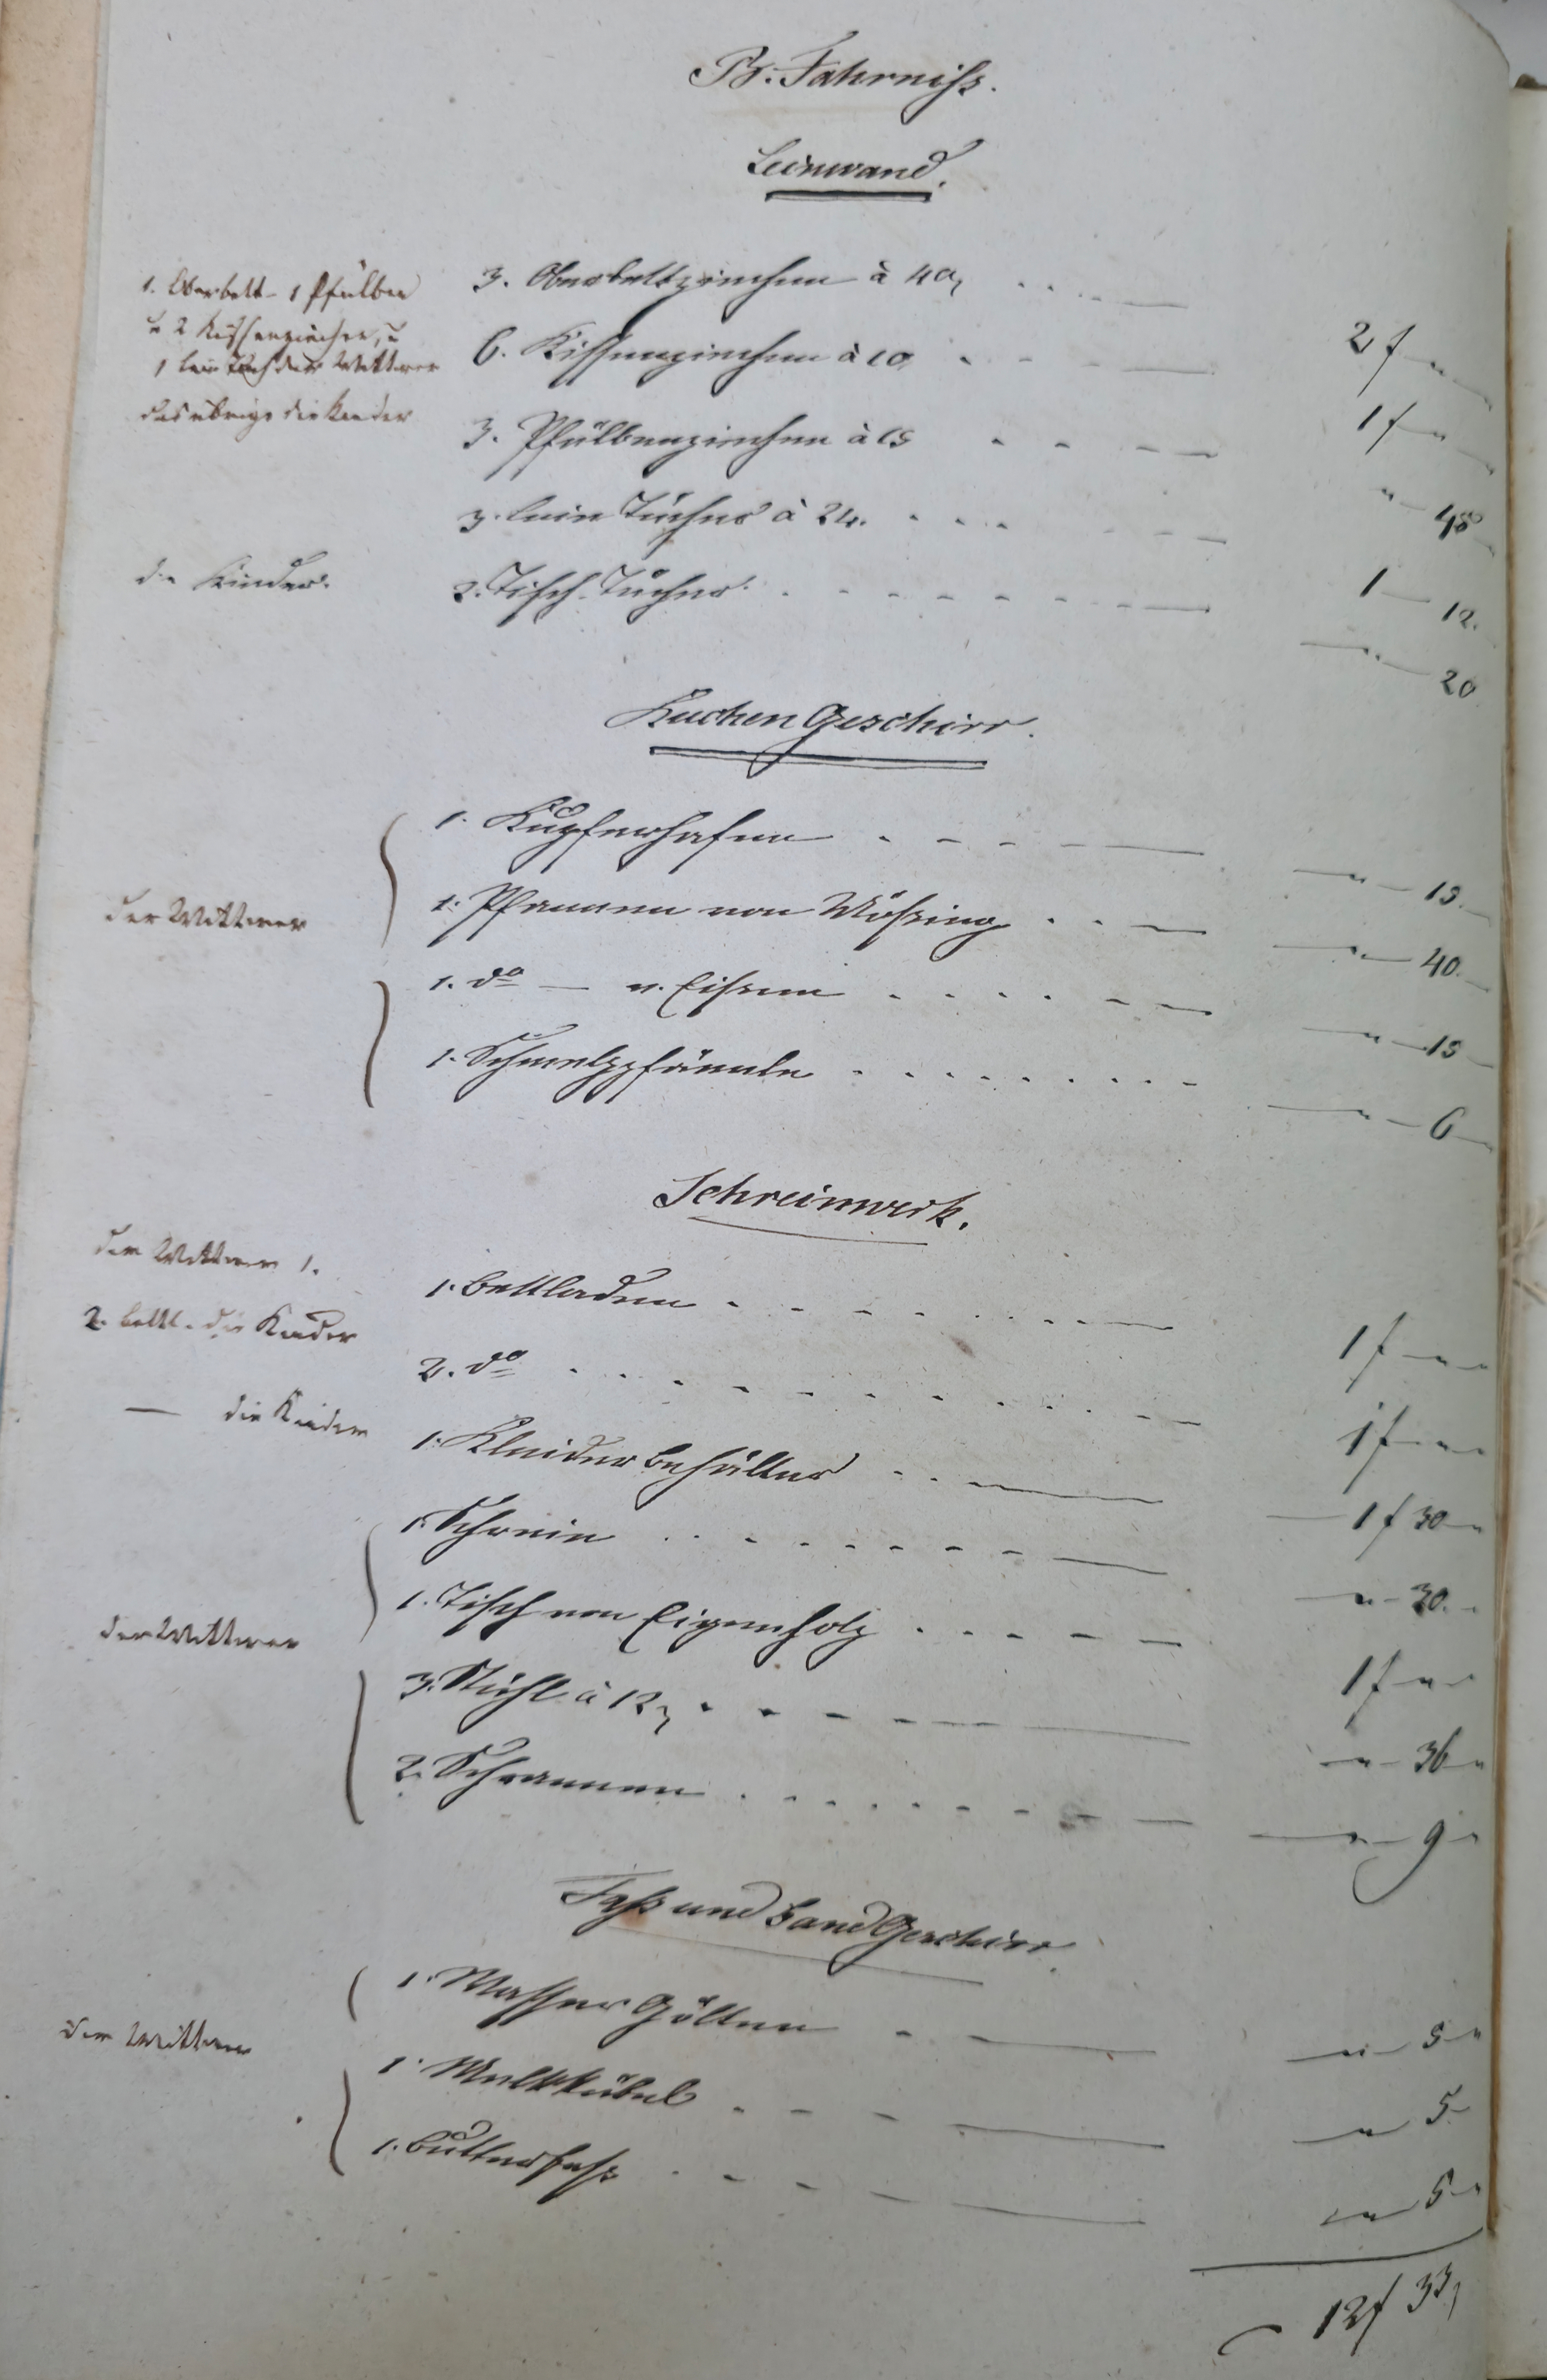 B. Fahrniß.
Leinwand.
1. Oberbett- 1 Pfulben
u 2 Kißenziechen, u
1 lein Tuch der Wittwer
das übrige die Kinder
3. Oberbettziechen à 40
2 f "
6. Kissenziechen à 10
1 f "
3. Pfülbenziechen à 15
" 45
3. lein Tücher à 24.
1 — 12.
die Kinder.
2. Tisch-Tücher.
" — 20
Kuchen Geschirr.
der Wittwer
1. Kupferhafen
" — 15.
1. Pfannen von Mössing
" — 40.
1. do — v. Eissen
" — 15
1. Schmelzpfännle
" — 6
Schreinwerk.
dem Wittwer 1.
1. Bettladen
1 f — "
2. bettl. die Kinder
2. do
1 f — "
— die Kinder
1. Kleiderbehälter
1 f 30
der Wittwer
1. Schrein
" — 30.
1. Tisch von Eigenholz
1 f "
3. Stühl à 12
" — 36
2. Schrannen
" — 9
Faß und Band Geschirr.
dem Wittwer
1. Wasser Gölten
" — 5
1. Melkkübel
" 5
1. Butterfaß
" 5
12 f 33